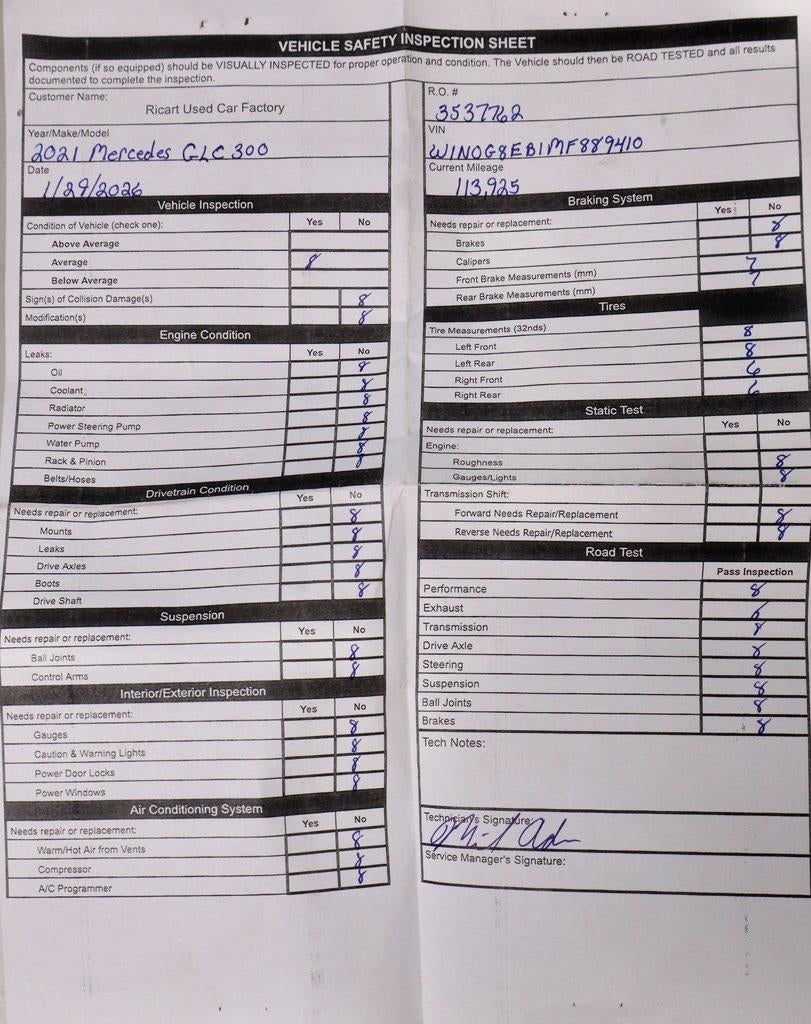 VEHICLE SAFETY INSPECTION SHEET
Components (if so equipped) should be VISUALLY INSPECTED for proper operation and condition. The Vehicle should then be ROAD TESTED and all results
documented to complete the inspection.
Customer Name:
Ricart Used Car Factory
Year/Make/Model
2021 Mercedes GLC 300
Date
1/29/2026
Vehicle Inspection
Condition of Vehicle (check one): Yes No
Above Average
Average 8
Below Average
Sign(s) of Collision Damage(s) 8
Modification(s) 8
Engine Condition
Leaks: Yes No
Oil 8
Coolant 8
Radiator 8
Power Steering Pump 8
Water Pump 8
Rack & Pinion 8
Belts/Hoses 8
Drivetrain Condition
Needs repair or replacement: Yes No
Mounts 8
Leaks 8
Drive Axles 8
Boots 8
Drive Shaft 8
Suspension
Needs repair or replacement: Yes No
Ball Joints 8
Control Arms 8
Interior/Exterior Inspection
Needs repair or replacement: Yes No
Gauges 8
Caution & Warning Lights 8
Power Door Locks 8
Power Windows 8
Air Conditioning System
Needs repair or replacement: Yes No
Warm/Hot Air from Vents 8
Compressor 8
A/C Programmer 8
R.O. #
3537762
VIN
W1N0G8EB1MF889410
Current Mileage
113,925
Braking System
Needs repair or replacement: Yes No
Brakes 8
Calipers 8
Front Brake Measurements (mm) 7
Rear Brake Measurements (mm) 7
Tires
Tire Measurements (32nds)
Left Front 8
Left Rear 8
Right Front 6
Right Rear 6
Static Test
Needs repair or replacement: Yes No
Engine:
Roughness 8
Gauges/Lights 8
Transmission Shift:
Forward Needs Repair/Replacement 8
Reverse Needs Repair/Replacement 8
Road Test
Pass Inspection
Performance 8
Exhaust 8
Transmission 8
Drive Axle 8
Steering 8
Suspension 8
Ball Joints 8
Brakes 8
Tech Notes:
Technician's Signature:
Service Manager's Signature: